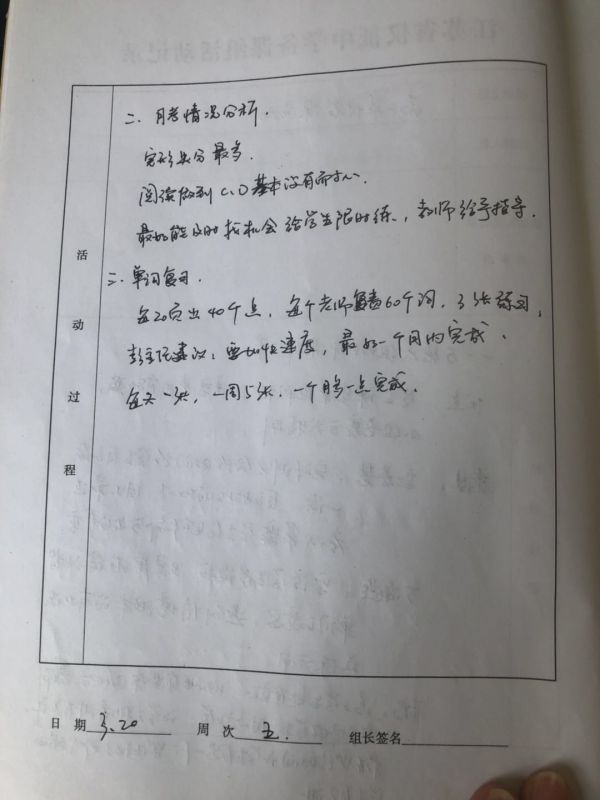 二、月考情况分析.
完形失分最多.
阅读做到C、D基本没有耐心.
最好能及时找机会给学生限时练,教师给予指导.
三、单词复习.
每20页出40个点,每个老师60个词,3张练习,
建议:要加快速度,最好一个月内完成.
每天一张,一周5张.一个月多一点完成.
活动过程
日期 3.20 周次 五. 组长签名